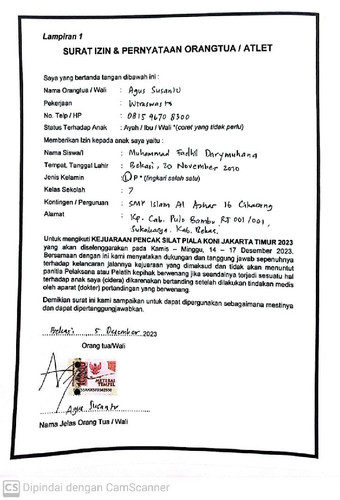 Lampiran 1
SURAT IZIN & PERNYATAAN ORANGTUA / ATLET
Saya yang bertanda tangan dibawah ini :
Nama Orangtua / Wali : Agus Susanto
Pekerjaan : Wiraswasta
No. Telp / HP : 0815 9670 8300
Status Terhadap Anak : Ayah / Ibu / Wali *(coret yang tidak perlu)
Memberikan Izin kepada anak saya yaitu :
Nama Siswa/i : Muhammad Fadhil Darymuhana
Tempat, Tanggal Lahir : Bekasi, 20 November 2010
Jenis Kelamin : L P * (lingkari salah satu)
Kelas Sekolah : 7
Kontingen / Perguruan : SMP Islam Al Azhar 16 Cikarang
Alamat : Kp. Cab. Pulo Bambu RT 001/001,
Sukaharja. Kab. Bekasi
Untuk mengikuti KEJUARAAN PENCAK SILAT PIALA KONI JAKARTA TIMUR 2023
yang akan diselenggarakan pada Kamis – Minggu, 14 – 17 Desember 2023.
Bersamaan dengan ini kami menyatakan dukungan dan tanggung jawab sepenuhnya
terhadap kelancaran jalannya kejuaraan yang dimaksud dan tidak akan menuntut
panitia Pelaksana atau Pelatih kepihak berwenang jika seandainya terjadi sesuatu hal
terhadap anak saya (cidera) dikarenakan bertanding setelah dilakukan tindakan medis
oleh aparat (dokter) pertandingan yang berwenang.
Demikian surat ini kami sampaikan untuk dapat dipergunakan sebagaimana mestinya
dan dapat dipertanggungjawabkan.
Bekasi, 5 Desember 2023
Orang tua/Wali
METERAI
TEMPEL
Agus Susanto
Nama Jelas Orang Tua / Wali
CS Dipindai dengan CamScanner